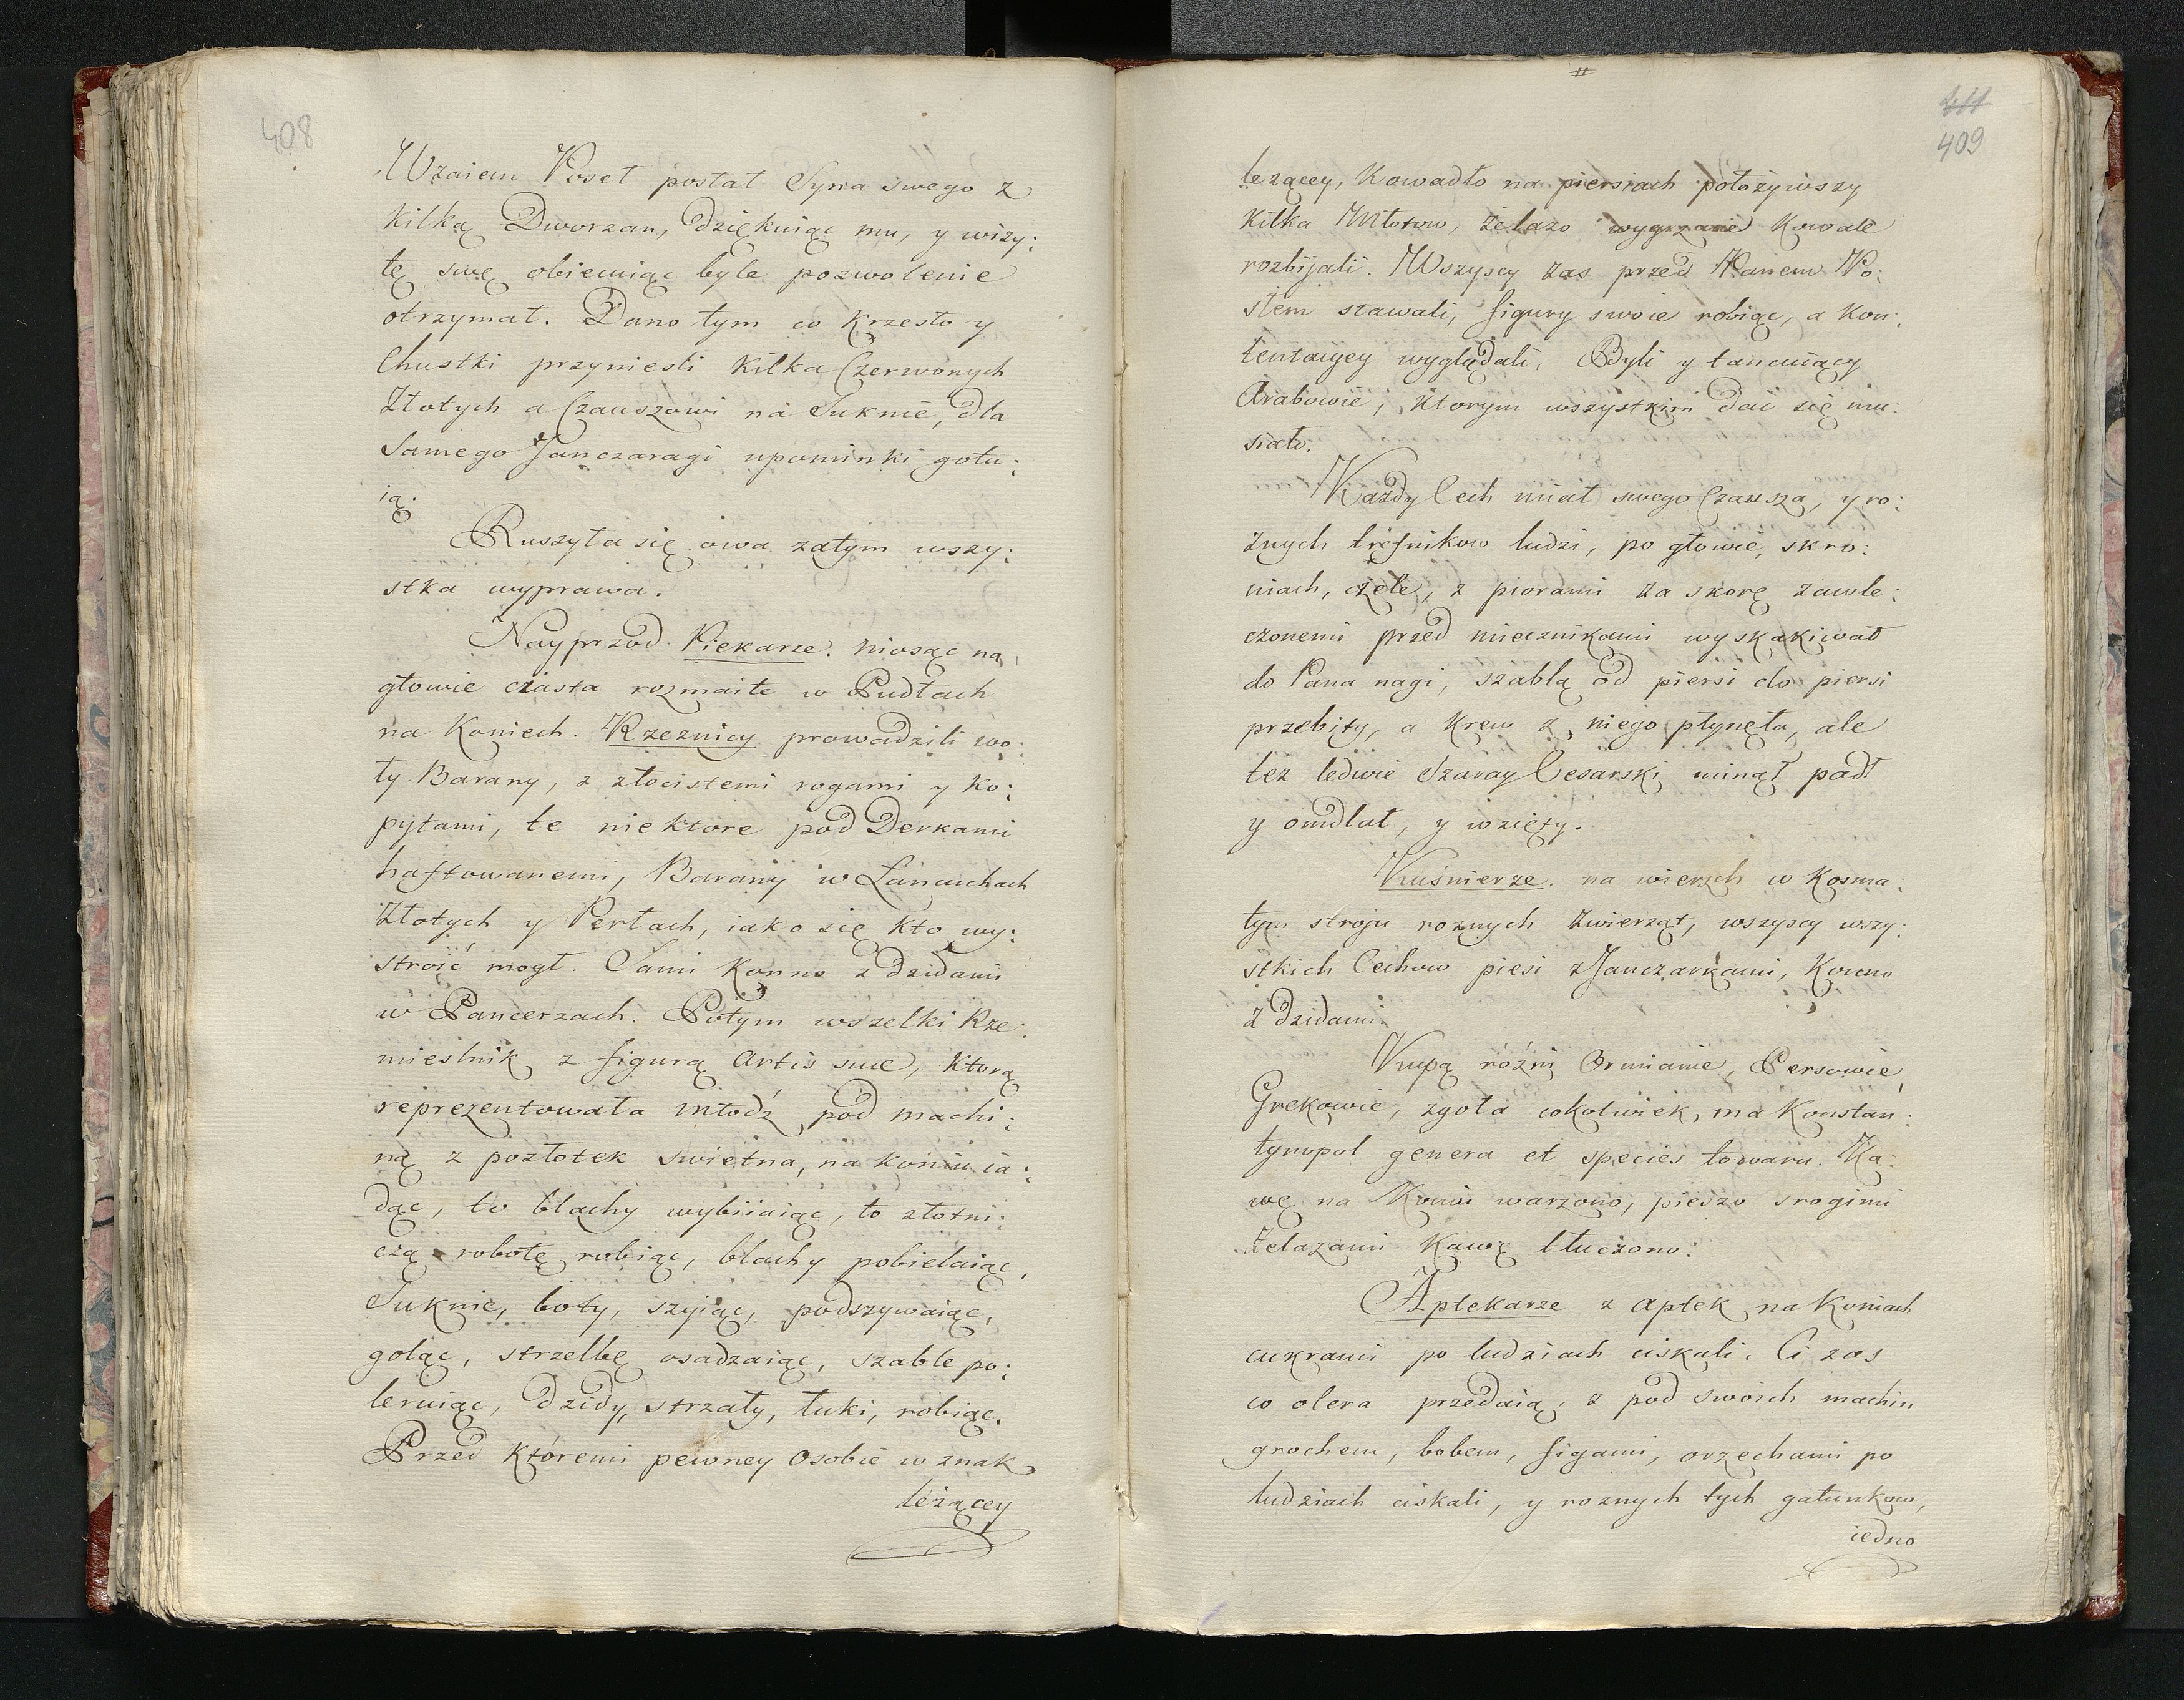 408
Wzaiem Poseł posłał Syna swego z
kilką Dworzan, dziękuiąc mu, y wizy:
tę swę obiecuiąc byle pozwolenie
otrzymał. Dano tym co krzesło y
Chustki przynieśli kilka Czerwonych
Złotych a Czauszowi na Suknie, dla
Samego Janczaragi upominki gotu:
ią.
Ruszyła się owa zatym wszy:
stka wyprawa.
Nayprzod Piekarze. niosąc na
głowie ciasta rozmaite w Pudłach
na Koniech. Rzeznicy prowadzili wo:
ły Barany, z złocistemi rogami y ko:
pytami, te niektore pod Derkami
haftowanemi, Barany w Łancuchach
Złotych y Perłach, iako się kto wy:
stroić mogł. Sami Konno z dzidami
w Pancerzach. Potym wszelki Rze:
mieslnik z figurą Artis suae, ktorą
reprezentowała młodź pod machi:
ną z pozłotek swietna, na koniu ia:
dąc, to blachy wybiiaiąc, to złotni:
czą robotę robiąc, blachy pobielaiąc,
Suknie, boty, szyiąc, podszywaiąc,
goląc, strzelbę osadzaiąc, szable po:
leruiąc, Dzidy, strzały, łuki, robiąc.
Przed któremi pewney Osobie w znak
leżącey
411
409
lezącey, Kowadło na piersiach położywszy
kilka Młotow, żelazo wygrzane Kowale
rozbijali. Wszyscy zas przed Panem Po:
słem stawali, figury swoie robiąc, a kon:
tentacyey wyglądali, Byli y tancuiący
Arabowie, ktorym wszystkim dać się mu:
siało.
Kazdy Cech miał swego Czausza, y ro:
żnych trefnikow ludzi, po głowie, skro:
niach, czele, z piorami za skorę zawle:
czonemi przed miecznikami wyskakiwał
do Pana nagi, szablą od piersi do piersi
przebity, a krew z niego płynęła, ale
tez ledwie Szaray Cesarski minął padł
y omdlał, y wzięty.
Kuśnierze. na wierzch w Kosma:
tym stroju roznych zwierząt, wszyscy wszy:
stkich Cechow piesi z Janczarkami, Konno
z Dzidami.
Kupą różni Ormianie, Persowie,
Grekowie, zgoła cokolwiek, ma Konstan:
tynopol genera et species towaru. Ka:
wę na Koniu warzono, pieszo srogimi
żelazami Kawę tłuczono.
Aptekarze z aptek na Koniach
cukrami po ludziach ciskali. Ci zas
co olera przedaią, z pod swoich machin
grochem, bobem, figami, orzechami po
ludziach ciskali, y roznych tych gatunkow,
iedno